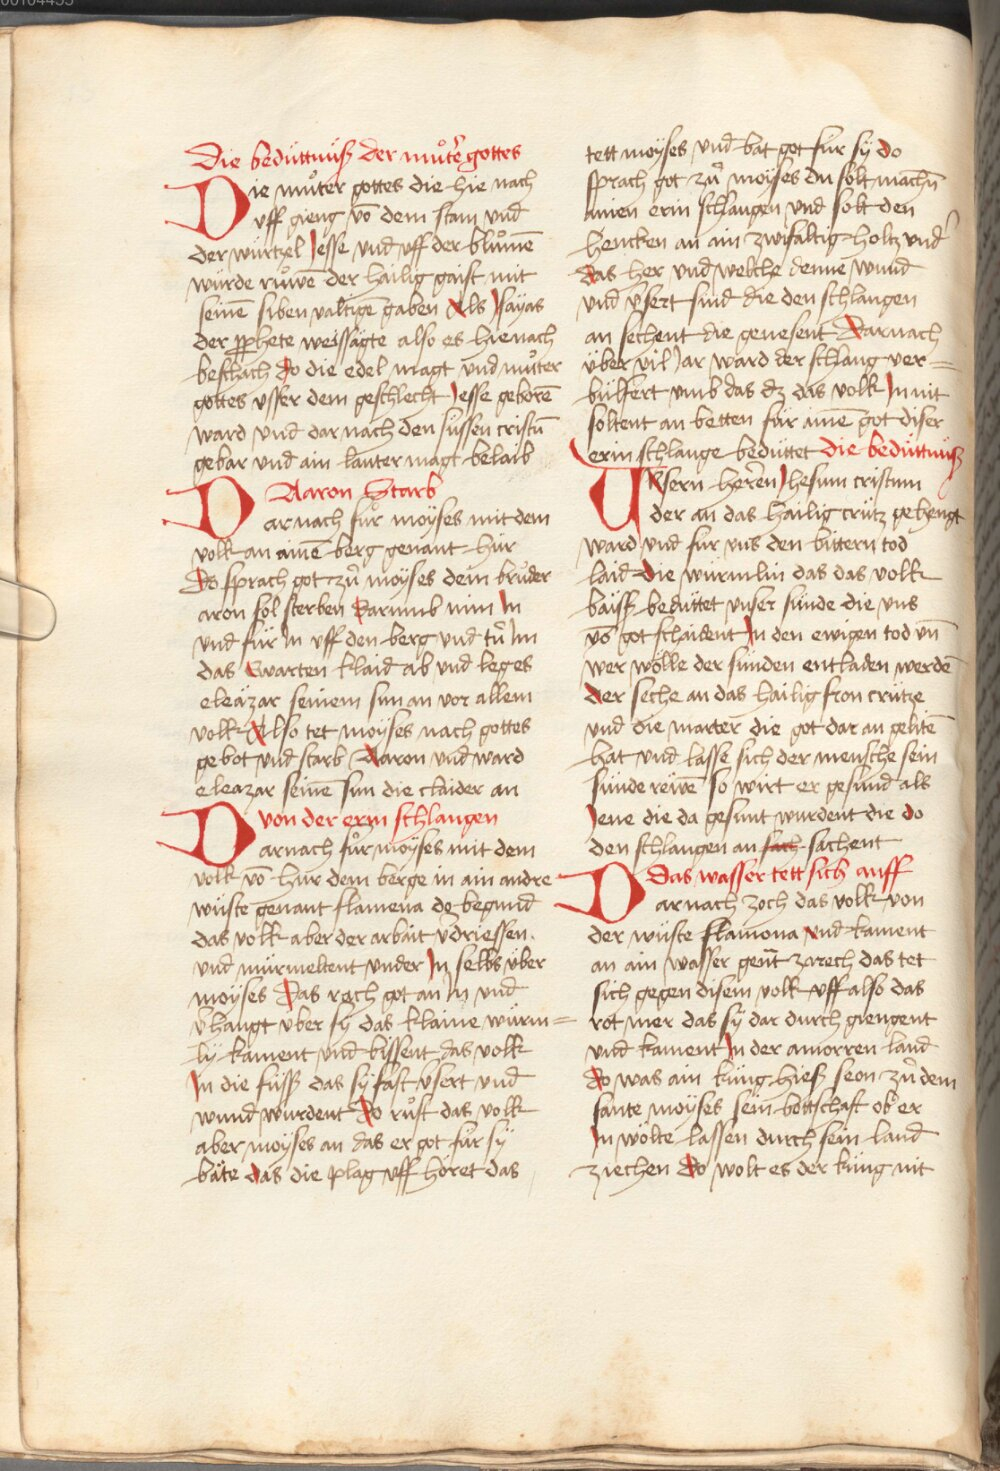 Die bedüttnüß der muͦter gottes
Die muͦter gottes die hie nach
vff gieng vō dem stam vnd
der würtzel Jesse vnd vff der bluͦmē
würde ruͦwē der hailig gaist mit
seinē siben valtigē gaben Als Jsayas
der prophete weissagte also es hienach
beschach Do die edel magt vnd muͦter
gottes vsser dem geschlecht Jesse geborē
ward vnd dar nach den süssen cristū
gebar vnd ain lauter magt belaib
Aaron Starb
Darnach fuͦr moÿses mit dem
volk an ainē berg genant hür
Do sprach got zuͦ moÿses dein bruͦder
aron sol sterben Darumb nim Jn
vnd für Jn vff den berg vnd tuͦ Jm
das Ewarten klaid ab vnd leg es
eleäzar seinem sun an vor allem
volk Also tet moÿses nach gottes
gebot vnd starb Aaron vnd ward
eleazar seinē sun die claider an
von der erin schlangen
Darnach fuͦr moÿses mit dem
volk vō hür dem berge in ain andre
wüste genant flamena do begund
das volk aber der arbait v̄driessen.
vnd mürmeltent vnder Jn selbs über
moÿses Das rach got an in vnd
v̄hangt über sÿ das klaine würm=
ly kament vnd bissent das volk
Jn die füss das sÿ fast v̄sert vnd
wund wurdent Do ruͦft das volk
aber moÿses an das er got für sÿ
bäte das die plag vff höret das
tett moÿses vnd bat got für sÿ do
sprach got zuͦ moÿses du solt machn̄
ainen erin schlangen vnd solt den
hencken an ain zwifaltig holtz vnd
das her vnd welche denne wund
vnd v̄sert sind die den schlangen
an sechent die genesent Darnach
über vil Jar ward der schlang ver=
bülfert vmb das dz das volk Jn nit
soltent an betten für ainē got diser
erin schlange bedüttet die bedüttnüß
Vnsern herrēn Jhesum cristum
der an das hailig crütz gehengt
ward vnd für vns den bittern tod
laid die würmlin das das volk
baiss bedüttet vnser sünde die vns
vō got schaident Jn den ewigen tod vn̄
wer wölle der sünden entladen werdē
der seche an das hailig fron crütze
vnd die marter die got dar an gelitē
hat vnd lasse sich der mensche sein
sünde rewē so wirt er gesund als
Jene die da gesunt wurdent die do
den schlangen an sach sachent
Das wasser tett sich auff
Darnach zoch das volk von
der wüste flamona vnd kament
an ain wasser gent̄ zarech das tet
sich gegen disem volk vff also das
rot mer das sÿ dar durch giengent
vnd kament Jn der amorren land
Do was ain küng hieß seon zuͦ dem
sante moÿses sein bottschaft ob er
Jn wölte lassen durch sein land
ziechen Do wolt es der küng nit